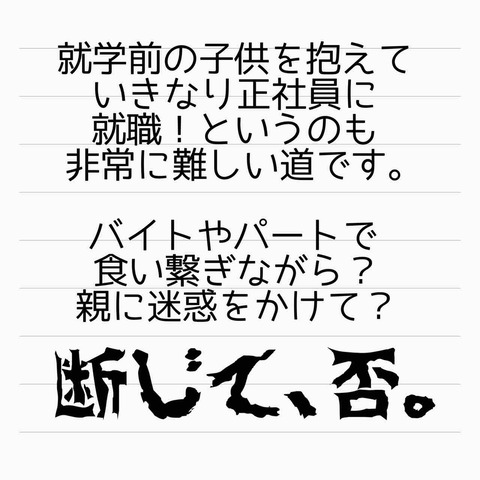 就学前の子供を抱えて
いきなり正社員に
就職！というのも
非常に難しい道です。
バイトやパートで
食い繋ぎながら？
親に迷惑をかけて？
断じて、否。